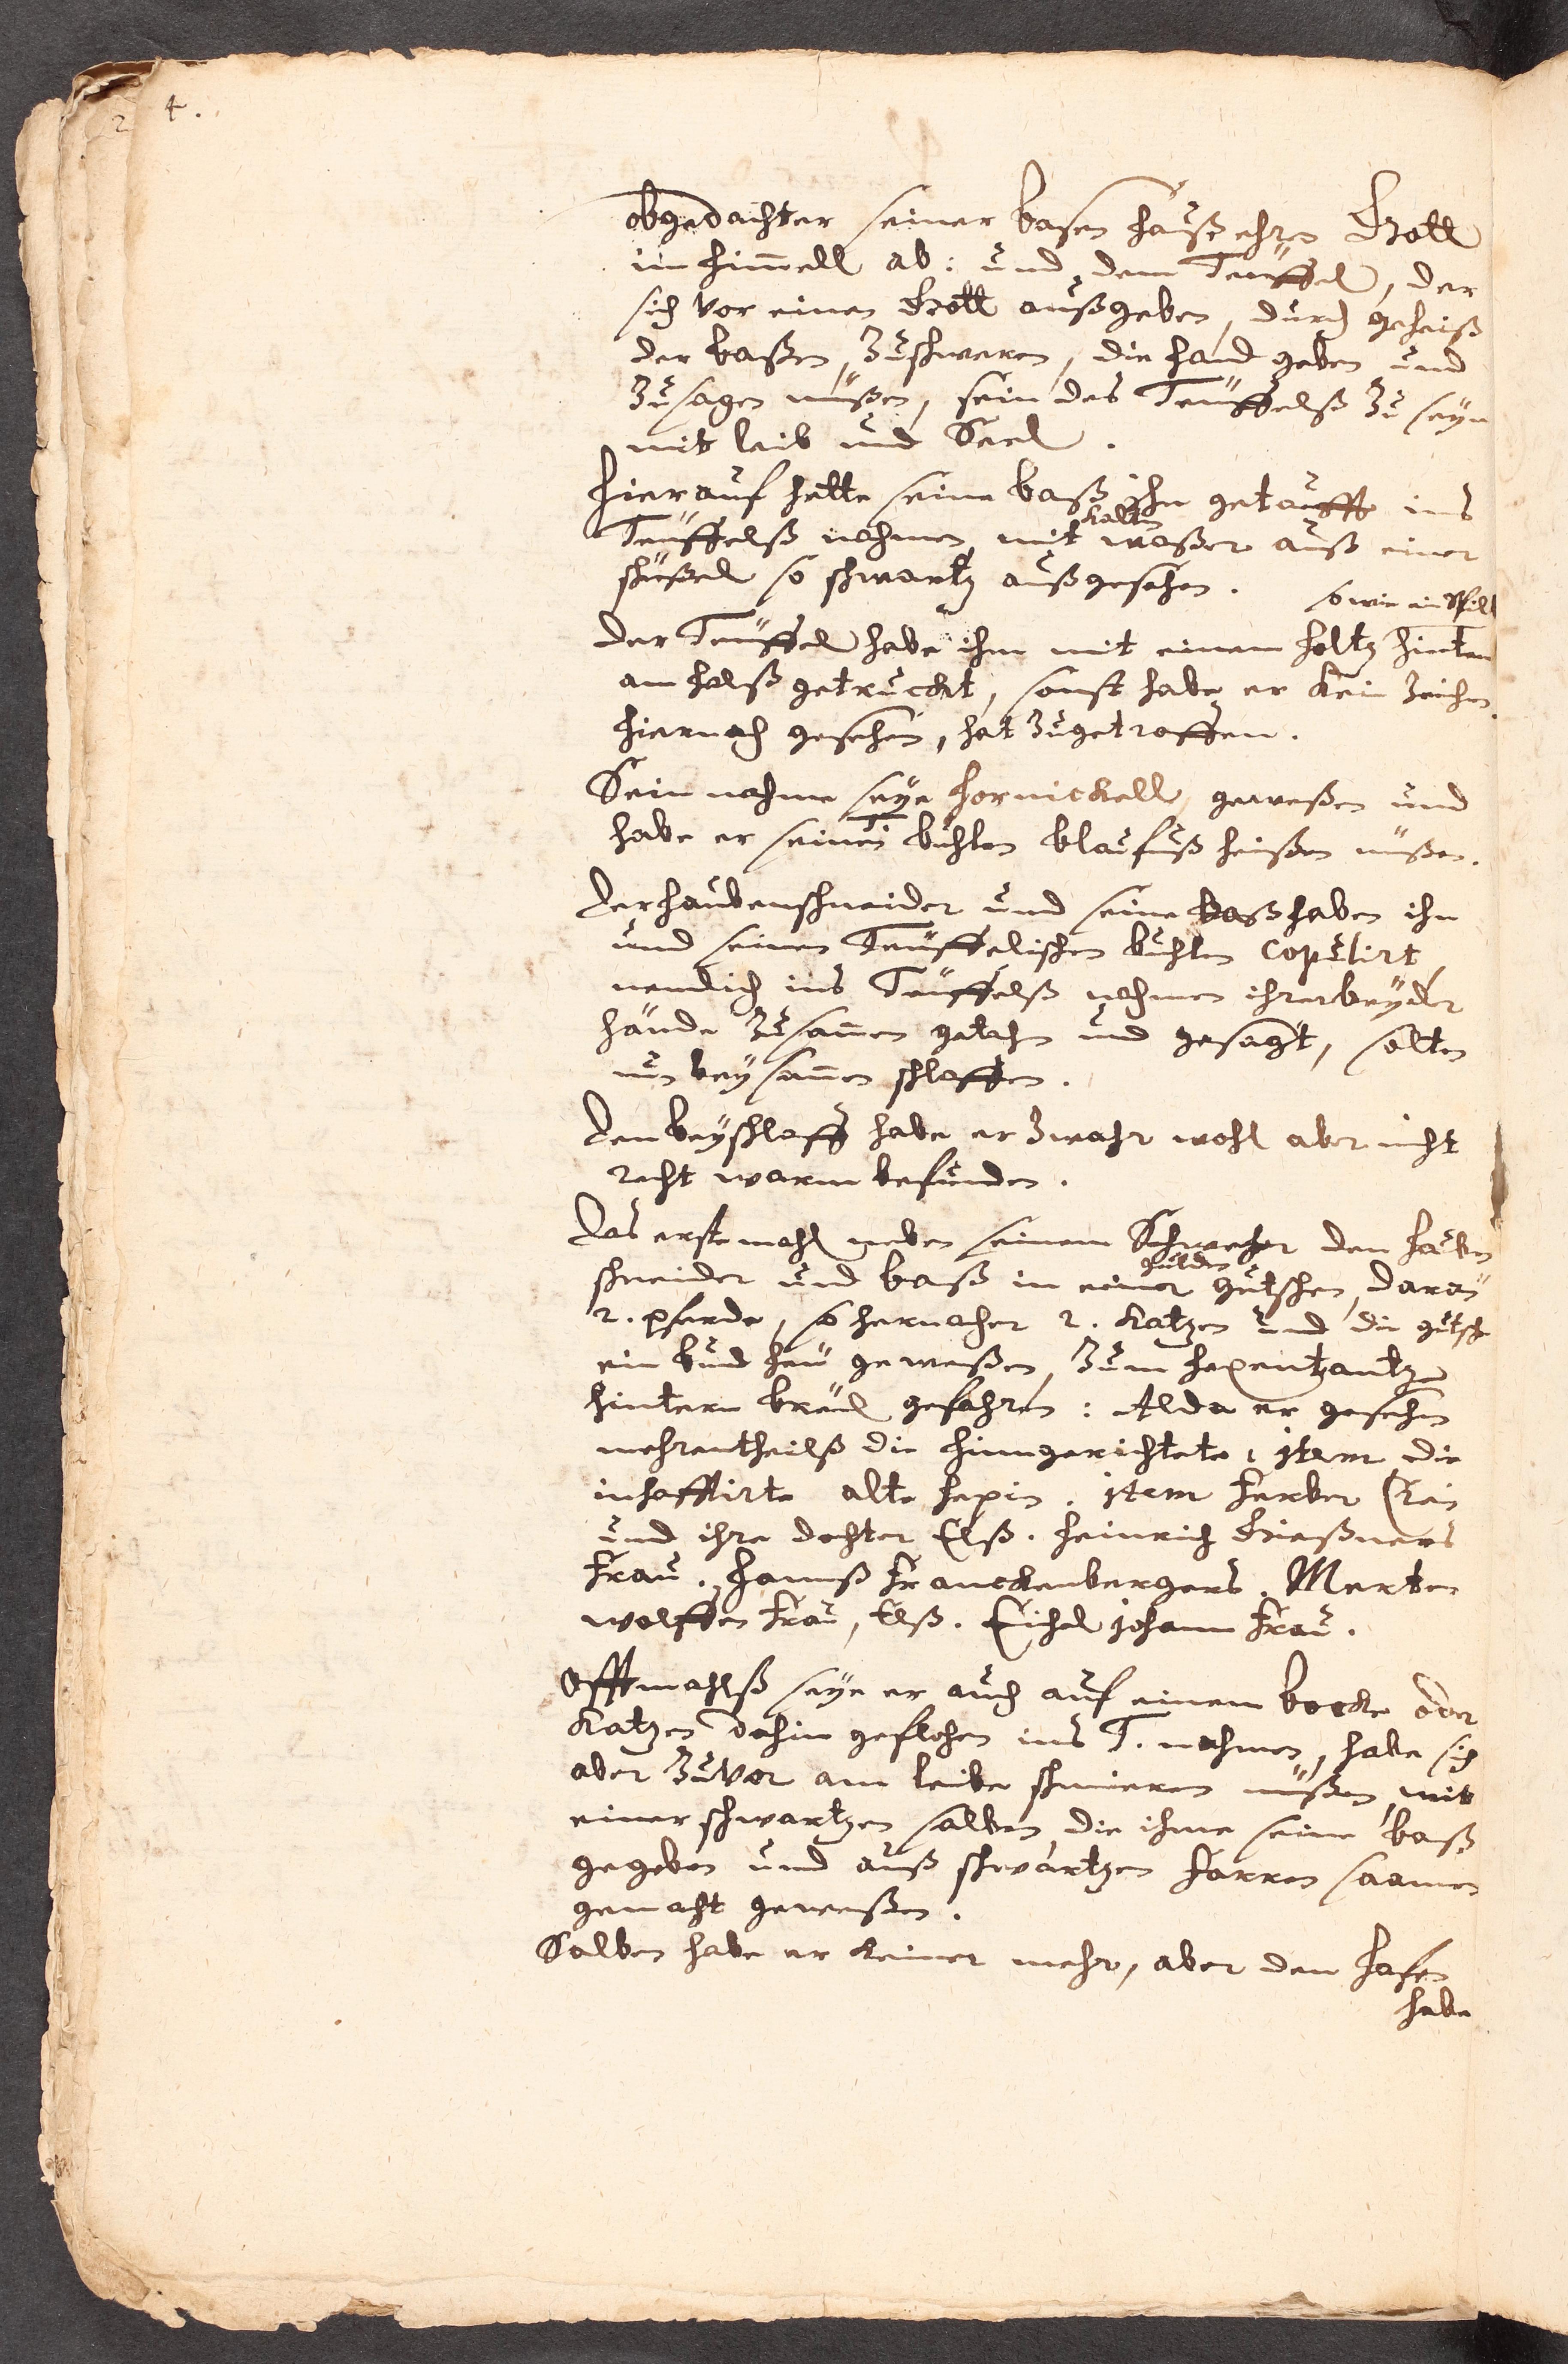 2 4.
obgedachter seiner basen hauß ehren Gott
im himmell ab: und dem Teuffel, der
sich vor einen Gott außgeben, durch geheiß
der baßen, zuschweren, die hand geben und
zusagen müßen, sein des Teuffelß zu seyn
mit leib und Seel.
Hierauf hette seine baß ihn getaufft ins
kalten
Teuffelß nahmen mit waßer auß einer
schüßel so schwartz außgesehen.
so wie ein
Der Teuffel habe ihm mit einem holtz hinten
am halß getruckt, sonst habe er kein zeichen.
hiernach gesehen, hat zugetroffen.
Sein nahme seye Hornickell geweßen und
habe er seinen buhlen blaufuß heißen müßen.
Der haubenschneider und seine baß haben ihn
und seinen Teuffelischen buhlen copulirt
nemlich ins Teuffelß nahmen ihrer beyder
hände zusammen gethan und gesagt, solten
nun beysammen schlaffen.
Den beyschlaff habe er zwahr wohl aber nicht
recht warm befunden.
Das erste mahl neben seinem Schweher den hauben
gulden
schneider und baß in einer gutschen, daran
2. pferde, so hernacher 2. katzen und die gutsch
ein bund heu geweßen, zum hexentantze
hintern breul gefahren: Alda er gesehen
mehrentheilß die hinngerichtete, item die
inhafftirte alte hexin. item Ferber Crein
und ihre dochter Elß. Heinrich Grießners
Frau. Hannß Franckenbergers. Merten
wolffen Frau, Elß. Eichel johann Frau.
Offtmahlß seye er auch auf einem bocke oder
katzen dahin geflohen ins T. nahmen, habe sich
aber zuvor am leibe schmieren müßen, mit
einer schwartzen salben die ihme seine baß
gegeben und auß schwartzen Farren saamen
gemacht geweßen.
Salben habe er keiner mehr, aber den Hafen
habe